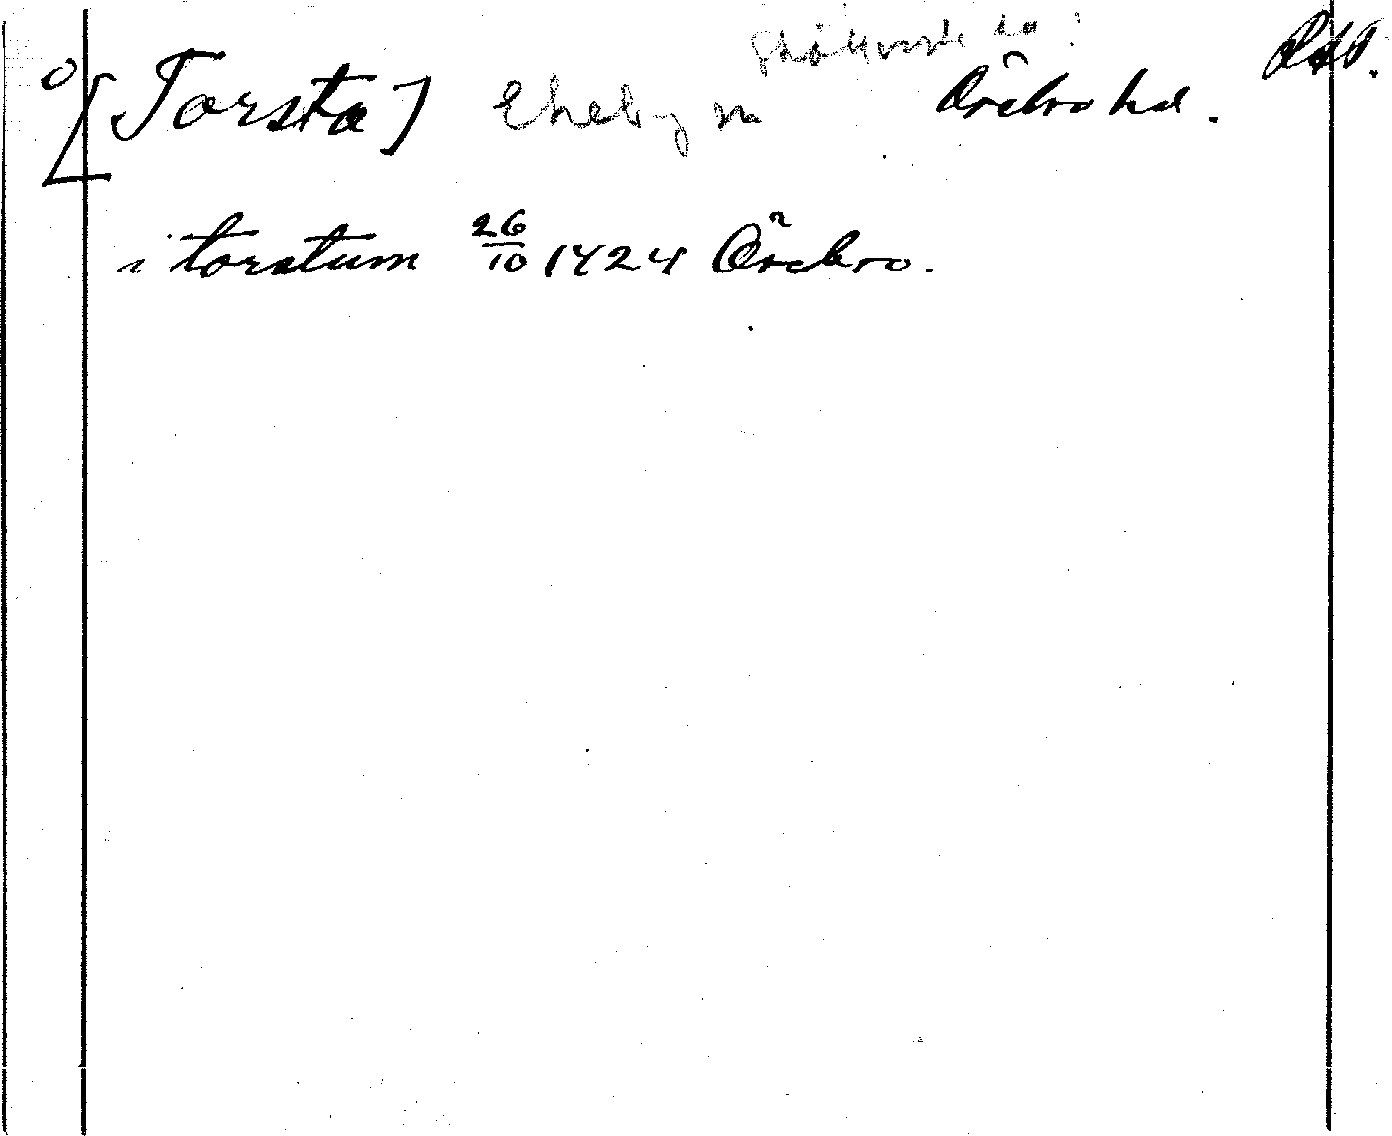 [Torsta] Ekeby sn Örebro hd.
i torstum 26/10 1424 Örebro.